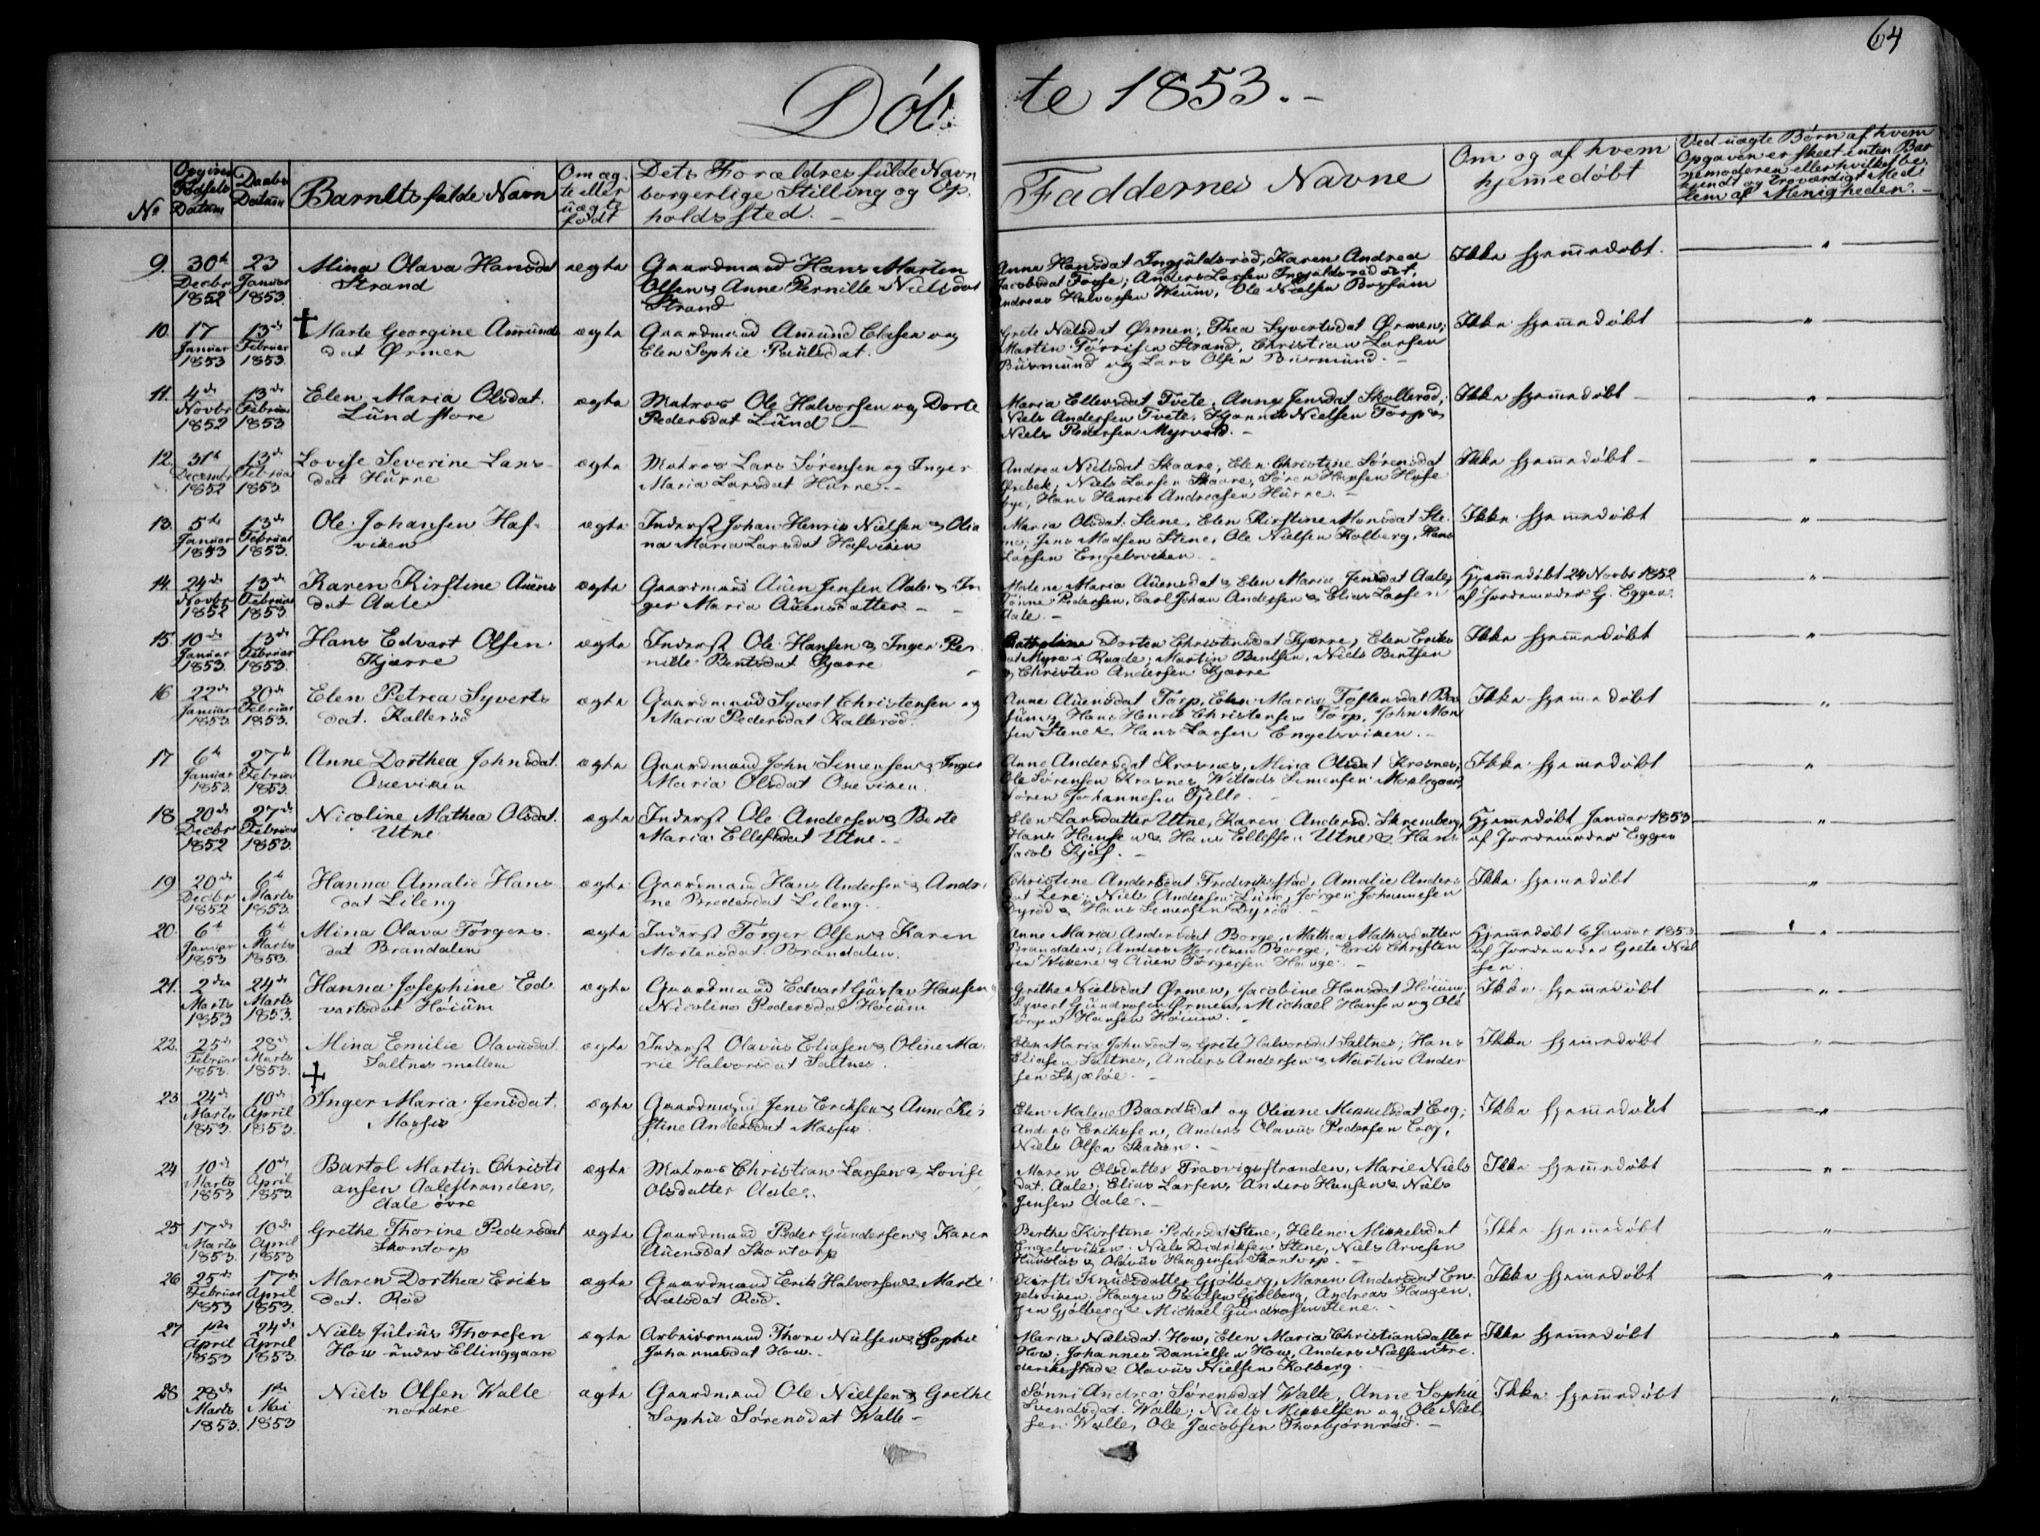 64
Døb te 1853.
No
Opgivet Fødsels Datum
Daabs Datum
Barnets fulde Navn
Om ægte eller uægte født
Dets Forældres fulde Navn borgerlige Stilling og Opholdssted.
Faddernes Navne
Om og af hvem hjemmedøbt
Ved uægte Børn af hvem Opgaven er skeet enten Barnemoderen eller hvilket bekjendt og troværdigt Medlem af Menigheden.
9. 30te Decbr 1852
23 Januar 1853
Mina Olava Hansdat
Strand
ægte
Gaardmand Hans Martin
Olsen & Anne Pernille Nielsdat
Strand
Anne Hansdat Ingjaldsrød, Karen Andrea
Jacobsdat Fosse; Anders Larsen Ingjaldsrød
Andreas Halvorsen Weum, Ole Nielsen
Ikke hjemmedøbt.
10. 17 Januar 1853
13de Februar 1853
Marte Georgine Amunds
dat Ørmen
ægte
Gaardmand Amund Olsen og
Elen Sophie Paulsdat.
Grete Nielsdat Ørmen, Thea Syvertsdat Ørmen;
Martin Strand, Christian Larsen
og Lars Olsen
Ikke hjemmedøbt
11. 4de Novbr 1852
13de Februar 1853
Elen Maria Olsdat.
Lund store
ægte
Matros Ole Halvorsen og Dorte
Pedersdat Lund
Maria Ellevsdat Tvete, Anne Jensdat Skallerød;
Niels Andersen Tvete, Nielsen Torp &
Niels Pedersen Myrvold.
Ikke hjemmedøbt
12. 31te December 1852
13de Februar 1853
Lovise Severine Lars-
dat Hurre
ægte
Matros Lars Sørensen og Inger
Maria Larsdat Hurre.
Andrea Nielsdat Skaare, Elen Christine Sørensdat
Niels Larsen Skaare, Søren Hansen
Hans Henrik Andreasen Hurre.
Ikke hjemmedøbt
13. 5te Januar 1853
13de Februar 1853
Ole Johansen Haf-
viken
ægte
Inderst Johan Henrik Nielsen & Olia
na Maria Larsdat Hafviken
Maria Olsdat Stene, Elen Kirstine Monsdat Ste-
ne; Jens Madsen Stene, Ole Nielsen Kolberg, Hans
Larsen Engelsviken
Ikke hjemmedøbt
14. 24de Novbr 1852
13de Februar 1853
Karen Kirstine Auens
dat Aale
ægte
Gaardmand Auen Jensen Aale & In
ger Maria Auensdatter
Malene Maria Auensdat & Elen Maria Jensdat Aale;
Pedersen, Carl Johan Andersen & Elias Larsen
Aale
Hjemmedøbt 24 Novbr 1852
af Jordemoder G. Eggen.
15 10de Januar 1853.
13de Februar 1853.
Hans Edvart Olsen
Kjærre
ægte
Inderst Ole Hansen & Inger Per
nille Bentsdat Kjærre
Dortea Christensdat Kjærre, Elen Eriks
dat Myre i Raade; Martin Bentsen, Niels Bentsen
& Christen Andersen Kjærre
Ikke hjemmedøbt
16 22de Januar 1853.
20de Februar 1853.
Elen Petrea Syverts
dat. Kallerød
ægte
Gaardmand Syvert Christensen og
Maria Pedersdat Kallerød.
Anne Auensdat Torp, Elen Maria
Hans Henrik Christensen Torp, John Mon
sen Stene & Hans Larsen Engelsviken.
Ikke hjemmedøbt
17 6te Januar 1853.
27de Februar 1853.
Anne Dorthea Johnsdat.
Oxeviken
ægte
Gaardmand John Simensen & Inger
Maria Olsdat Oxeviken.
Anne Andersdat Krosnes, Mina Olsdat Krosnes;
Ole Sørensen Krosnes, Willads Simensen
Søren Johannesen Fjelle.
Ikke hjemmedøbt
18 20de Decbr 1852
27de Februar 1853.
Nicoline Mathea Olsdat.
Utne
ægte
Inderst Ole Andersen & Berte
Maria Ellefsdat Utne.
Elen Larsdatter Utne, Karen Andersd. Skremberg,
Hans Hansen & Hans Ellefsen Utne & Hans
Jacob
Hjemmedøbt Januar 1853
af Jordemoder Eggen
19 20de Decbr 1852
6te Marts 1853.
Hanna Amalie Hans
dat Lileng
ægte
Gaardmand Hans Andersen & Andri
ne Pedersdat Lileng.
Christine Andersdat Frederikstad, Amalie Anders
dat Lere; Niels Andersen Lund, Jørgen Johannesen
Dyrød & Hans Simensen Dyrød
Ikke hjemmedøbt
20. 6te Januar 1853
6te Marts 1853.
Mina Olava Torgers-
dat Brandalen
ægte
Inderst Torger Olsen & Karen
Mortensdat Brandalen.
Anne Maria Andersdat Borge, Mathea Mathisdatter
Brandalen; Anders Mortensen Borge, Erik Christen
sen Wikene & Auen Torgersen Hauge.
Hjemmedøbt 6 Januar 1853
af Jordemoder Grete Niel
sen.
21. 2den Marts 1853
24de Marts 1853.
Hanna Josephine Ed-
vartsdat Høium
ægte
Gaardmand Edvart Gustav Hansen &
Nicoline Pedersdat Høium
Grethe Nielsdat Ørmen, Jacobine Hansdat Høium;
Syvert Gundrosen Ørmen, Michael Hansen og Ole
Jørgen Hansen Høium.
Ikke hjemmedøbt
22. 25de Februar 1853.
28de Marts 1853.
Mina Emilie Olavusdat.
Saltnes mellem
ægte
Inderst Olavus Eliasen & Oline Ma-
rie Halvorsdat Saltnes.
Elen Maria Johnsdat & Grete Halvorsdat Saltnes; Hans
Eliasen Saltnes, Anders Andersen & Martin Ander
sen Skjæløe.
Ikke hjemmedøbt
23 24de Marts 1853.
10de April 1853.
Inger Maria Jensdat.
Mosser
ægte
Gaardmand Jens Eriksen & Anne Kir
stine Andersdat Mosser
Elen Malene Baardsdat og Oliane Mikkelsdat Eeg;
Anders Eriksen, Anders Olavus Pedersen Eeg,
Niels Olsen Skaare.
Ikke hjemmedøbt
24 10de Marts 1853
10de April 1853.
Bartol Martin Christi
ansen Aalestranden,
Aale øvre
ægte
Matros Christian Larsen & Lovise
Olsdatter Aale.
Maren Olsdatter Trosvigstranden, Marie Niels
dat. Aale; Elias Larsen, Anders Hansen & Niels
Jensen Aale.
Ikke hjemmedøbt
25 17de Marts 1853.
10de April 1853
Grethe Thorine Pedersdat
Skontorp
ægte
Gaardmand Peder Gundersen & Karen
Auensdat Skontorp
Berthe Kirstine Pedersdat Stene, Helene Mikkelsdat
Engelsviken. Niels Didriksen Stene, Niels Arvesen
Hunslös & Olavus Haagensen Skontorp.
Ikke hjemmedøbt
26 25de Februar 1853
17de April 1853.
Maren Dorthea Eriks
dat. Rød
ægte
Gaardmand Erik Halvorsen & Marte
Nielsdat Rød.
Kirsti Knudsdatter Gjølberg, Maren Andersdat En-
gelsviken; Haagen Poulsen Gjølberg, Andreas Haagen-
sen Gjølberg & Michael Gundrosen Stene.
Ikke hjemmedøbt
27 1ste April 1853
24de April 1853.
Niels Julius Thoresen
How under Ellinggaard
ægte
Arbeidsmand Thore Nielsen & Sophie
Johannesdat How.
Maria Nielsdat How, Elen Maria Christiansdatter
How. Johannes Danielsen How, Anders Nielsen Fre-
derikstad & Olavus Nielsen Kolberg.
Ikke hjemmedøbt
28 28de Marts 1853.
1ste Mai 1853
Niels Olsen Walle
nordre
ægte
Gaardmand Ole Nielsen & Grethe
Sophie Sørensdat Walle
Andrea Sørensdat Walle, Anne Sophie
Svendsdat. Walle; Niels Mikkelsen og Ole Niel
sen Walle, Ole Jacobsen Thorbjørnrød.
Ikke hjemmedøbt